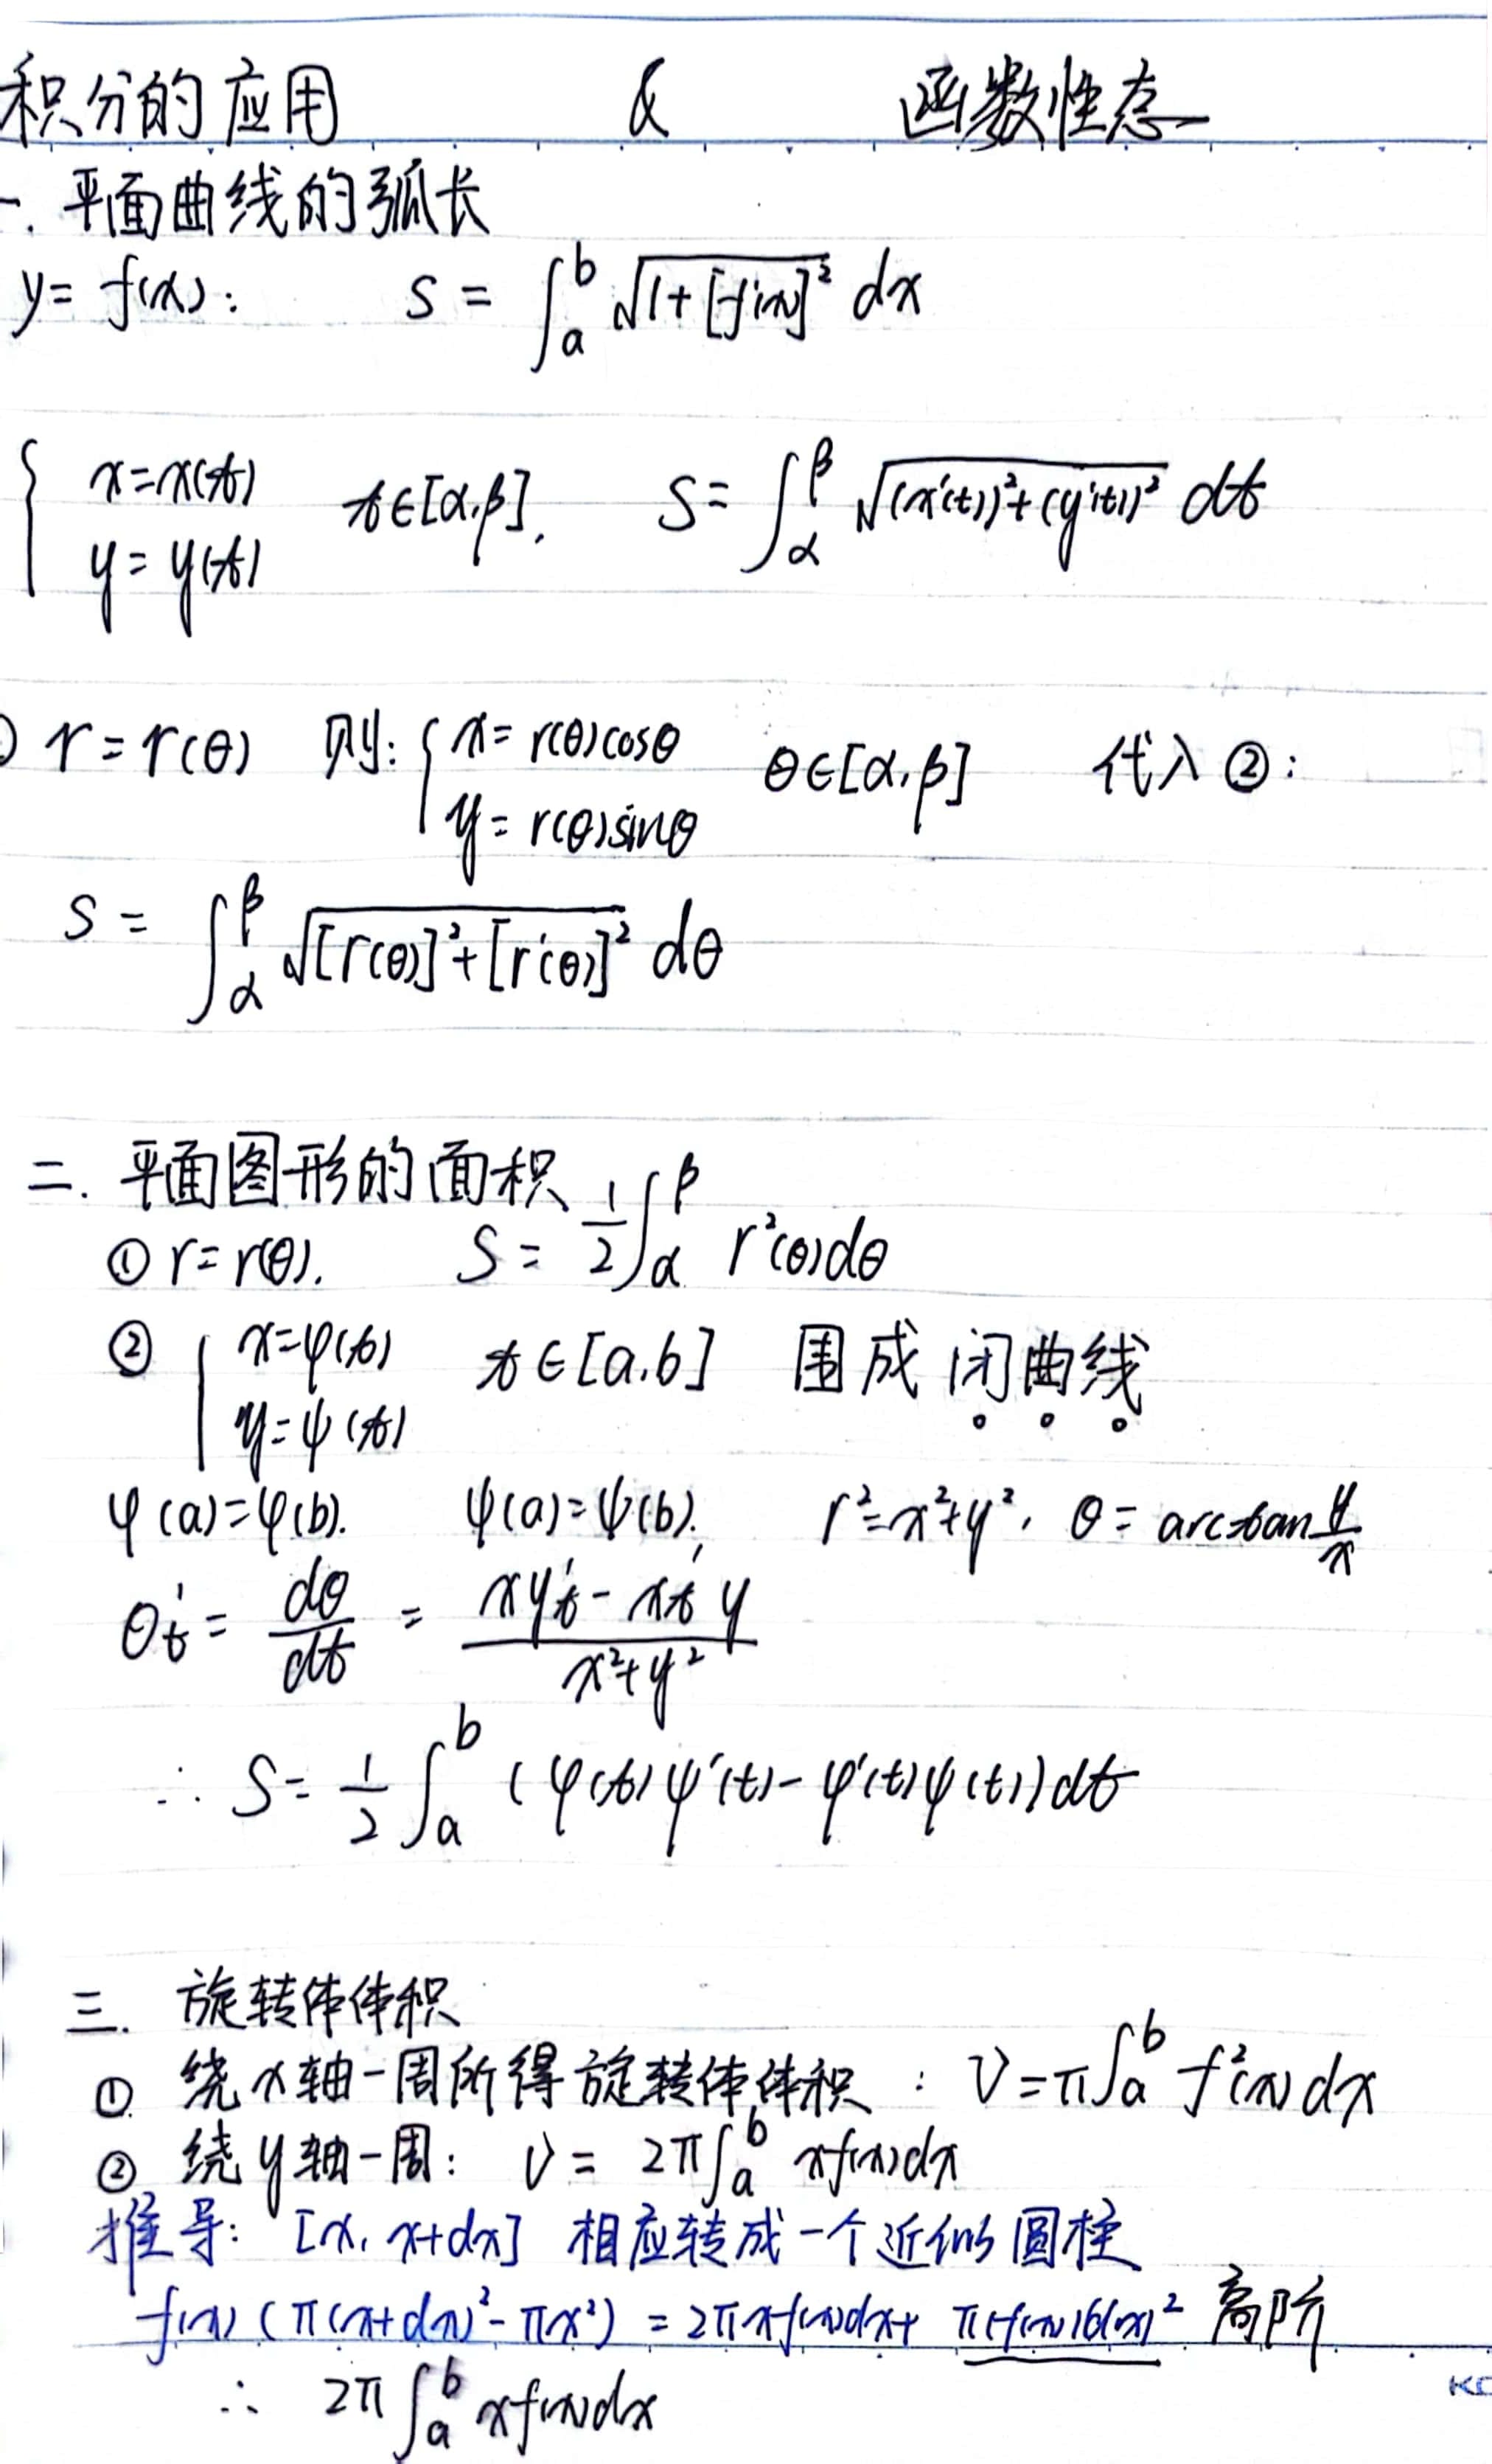 积分的应用 & 函数性态
一. 平面曲线的弧长
y = f(x): S = ∫_a^b √(1+[f'(x)]²) dx
{ x=x(t) y=y(t) t∈[α,β], S = ∫_α^β √((x'(t))²+(y'(t))²) dt
r = r(θ) 则: { x = r(θ)cosθ y = r(θ)sinθ θ∈[α,β] 代入②:
S = ∫_α^β √([r(θ)]²+[r'(θ)]²) dθ
二. 平面图形的面积
① r = r(θ). S = 1/2 ∫_α^β r²(θ)dθ
② { x=φ(t) y=ψ(t) t∈[a,b] 围成闭曲线
φ(a)=φ(b). ψ(a)=ψ(b). r²=x²+y², θ = arctan y/x
θ't = dθ/dt = (xy't - x't y)/(x²+y²)
∴ S = 1/2 ∫_a^b (φ(t)ψ'(t) - φ'(t)ψ(t))dt
三. 旋转体体积
① 绕x轴一周所得旋转体体积: V = π∫_a^b f²(x)dx
② 绕y轴一周: V = 2π∫_a^b xf(x)dx
推导: [x, x+dx] 相应转成一个近似圆柱
f(x)(π(x+dx)²-πx²) = 2πxf(x)dx + πf(x)(dx)² 高阶
∴ 2π∫_a^b xf(x)dx